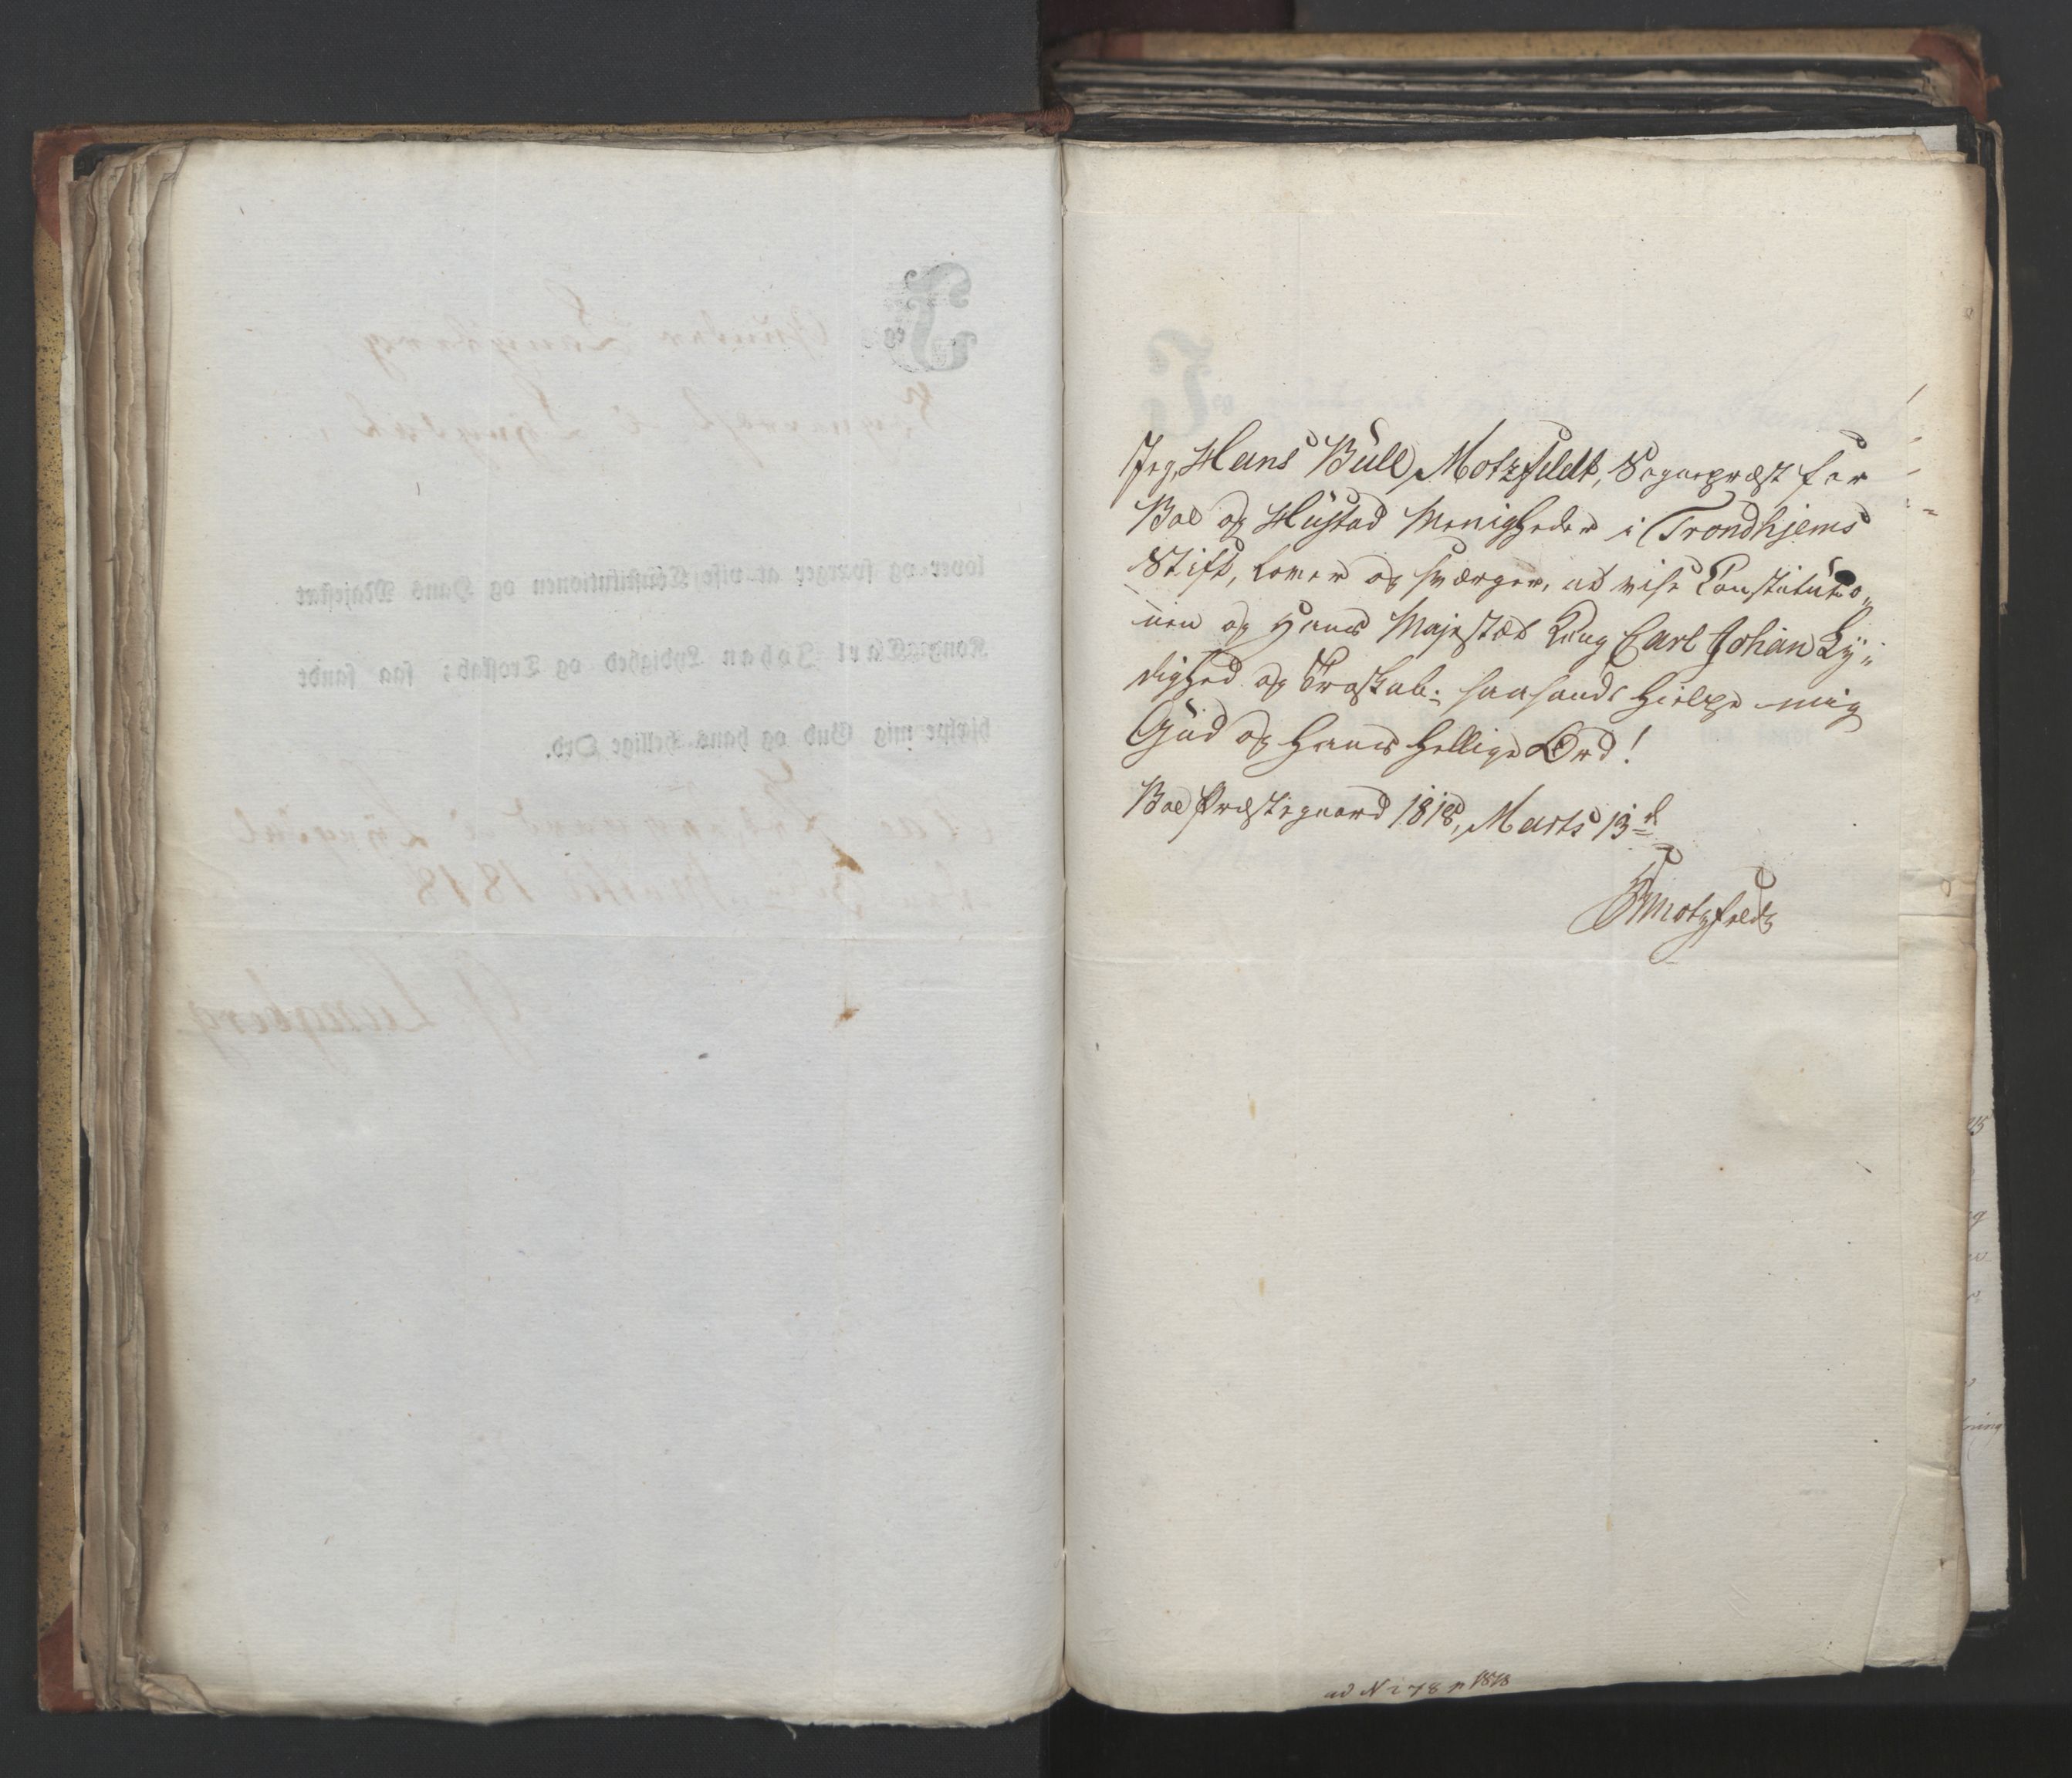 Jeg, Hans Bull Motzfeldt, Sognepræst for
Boe og Hustad Menigheder i Trondhjems
Stift, lover og sværger, at vise Constitutio„
nen og Hans Majestæt Kong Carl Johan Ly„
dighed og Troskab; saasandt hielpe mig
Gud og Hans hellige Ord!
Boe Præstegaard 1818, Marts 13d
HBMotzfeldt
ad N 278 p 1818